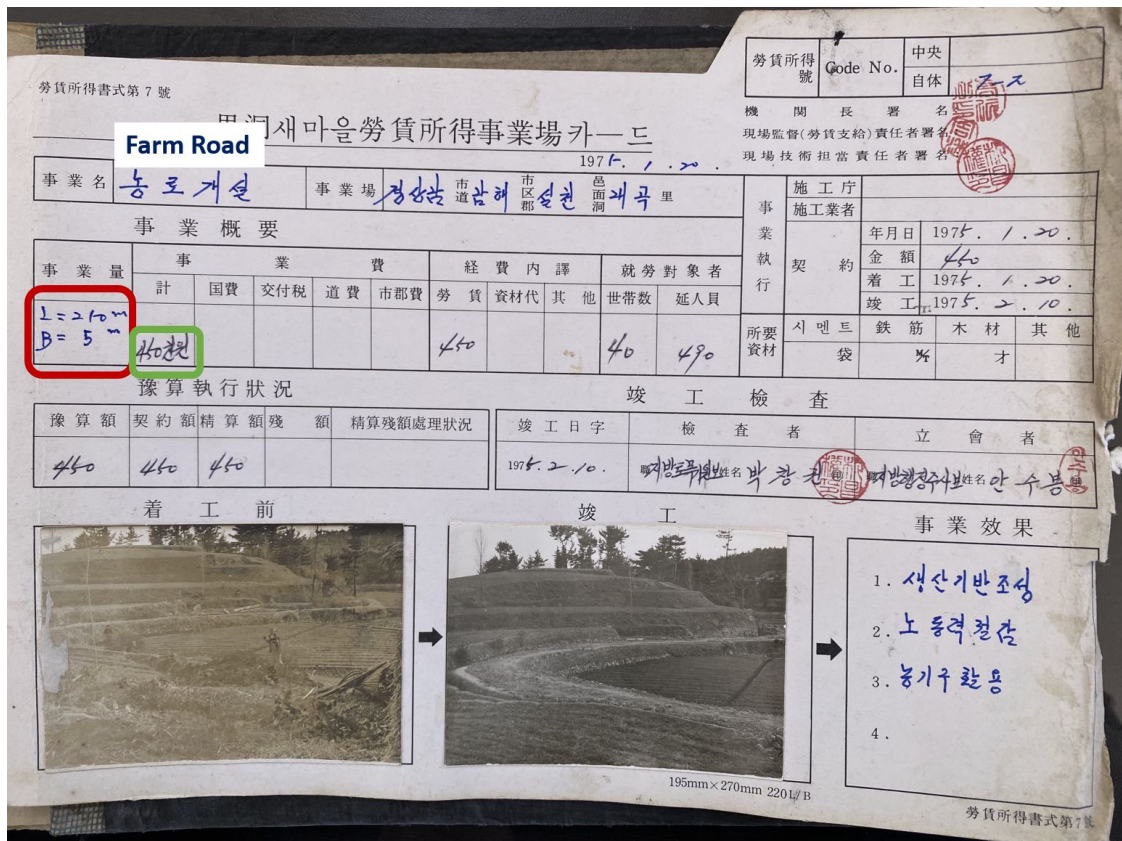 勞賃所得書式第 7 號
勞賃所得 號 Code No. 中央
自体
機 関 長 署 名
現場監督(勞賃支給)責任者署名
現場技術担當責任者署名
새마을勞賃所得事業場카ー드
Farm Road
1975. 1. 20.
事業名 농로개설 事業場 경상남 市道 남해 市区郡 설천 邑面洞 里
事業概要
事業量 事業費 経費内譯 就勞對象者
計 国費 交付税 道費 市郡費 勞賃 資材代 其他 世帯数 延人員
B= 5 m
450천원 450 40 490
事業執行
施工庁
施工業者
契約 年月日 1975. 1. 20.
金額 450
着工 1975. 1. 20.
竣工 1975. 2. 10.
所要資材 시멘트 鉄筋 木材 其他
袋 M/T 才
豫算執行狀況
豫算額 契約額 精算額 殘額 精算殘額處理狀況
450 450 450
竣工檢査
竣工日字 檢査者 立會者
1975. 2. 10. 姓名 박창권 지방행정주사보 姓名 안수봉
着工前
竣工
事業效果
1. 생산기반조성
2. 노동력절감
3. 농기구활용
4.
195mm×270mm 220L/B
勞賃所得書式第7號